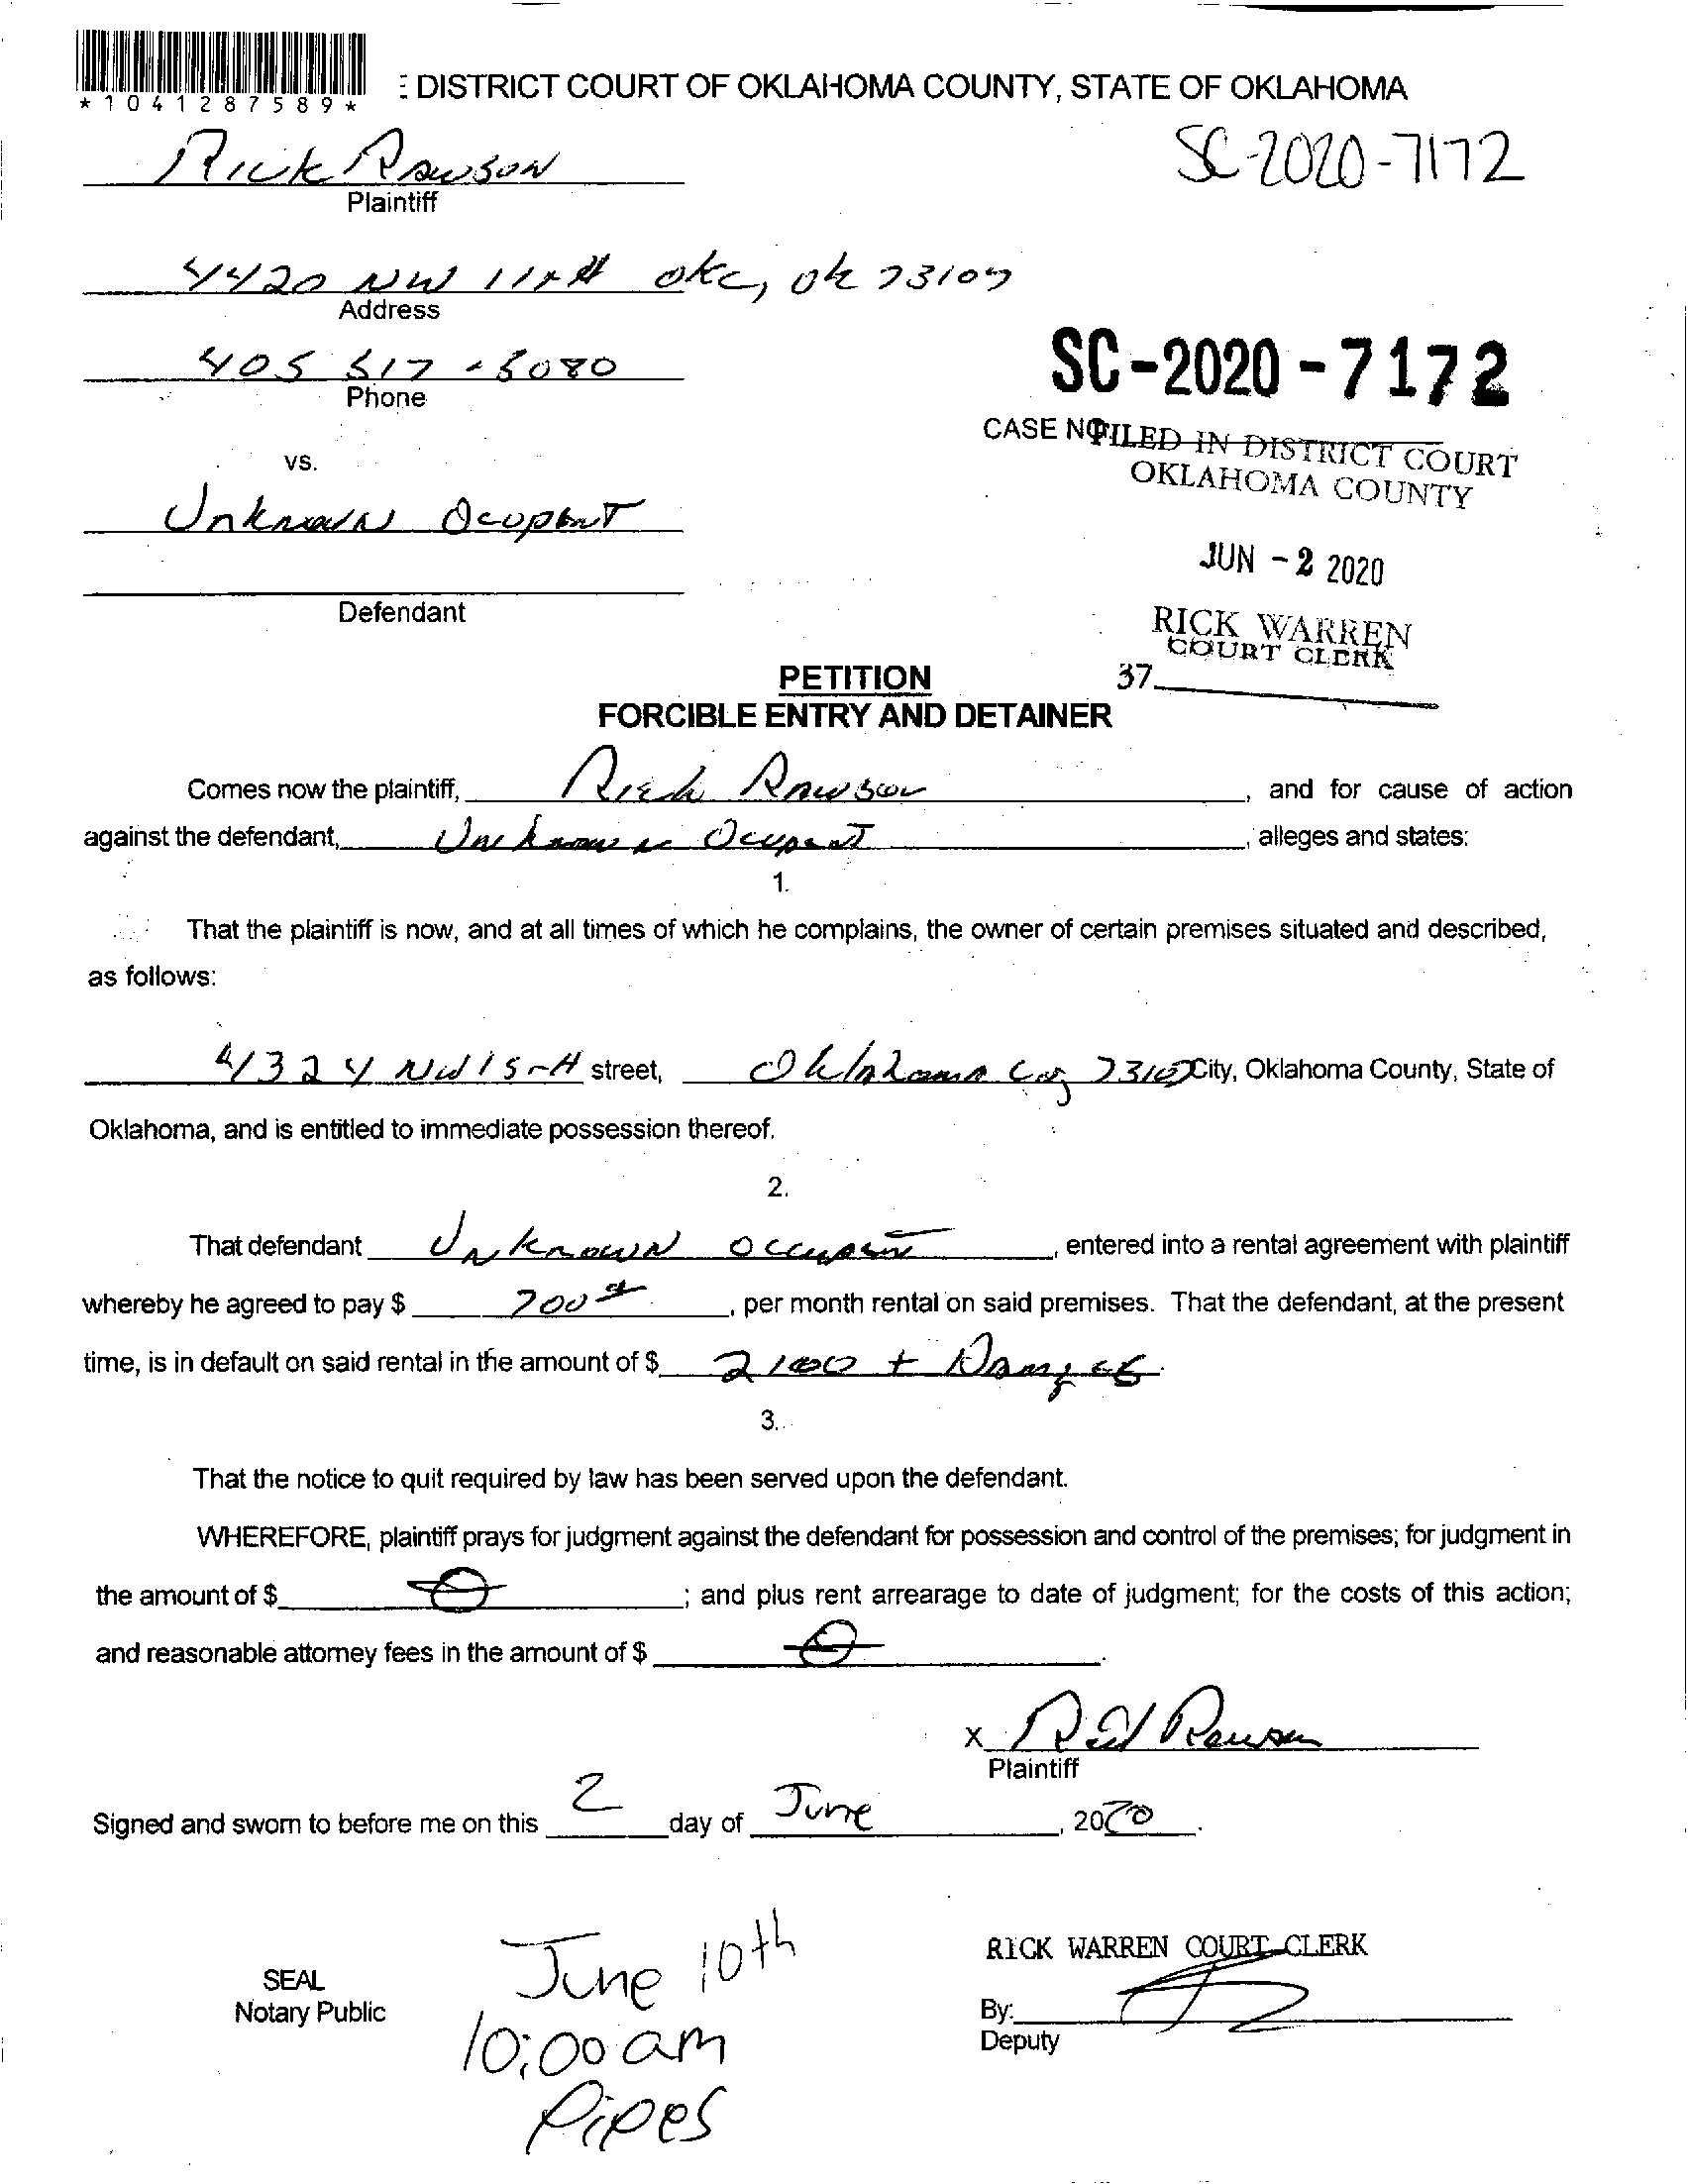 *1041287589*
DISTRICT COURT OF OKLAHOMA COUNTY, STATE OF OKLAHOMA
Rick Rawson
SC-2020-7172
Plaintiff
4420 NW 11th okc, ok 73107
Address
405 517-5080
Phone
SC-2020-7172
CASE NO
FILED IN DISTRICT COURT
OKLAHOMA COUNTY
vs.
Unknown Ocupant
JUN -2 2020
Defendant
RICK WARREN
COURT CLERK
37
PETITION
FORCIBLE ENTRY AND DETAINER
Comes now the plaintiff, Rick Rawson, and for cause of action
against the defendant, Unknown Ocupant, alleges and states:
1.
That the plaintiff is now, and at all times of which he complains, the owner of certain premises situated and described,
as follows:
4324 NW 15th street, Oklahoma City 73107 City, Oklahoma County, State of
Oklahoma, and is entitled to immediate possession thereof.
2.
That defendant Unknown occupant, entered into a rental agreement with plaintiff
whereby he agreed to pay $ 700, per month rental on said premises. That the defendant, at the present
time, is in default on said rental in the amount of $ 2100 +
3.
That the notice to quit required by law has been served upon the defendant.
WHEREFORE, plaintiff prays for judgment against the defendant for possession and control of the premises; for judgment in
the amount of $ 0; and plus rent arrearage to date of judgment; for the costs of this action;
and reasonable attorney fees in the amount of $ 0.
X Rick Rawson
Plaintiff
Signed and sworn to before me on this 2 day of June, 2020.
June 10th
10:00 am
Pipes
SEAL
Notary Public
RICK WARREN COURT CLERK
By:
Deputy